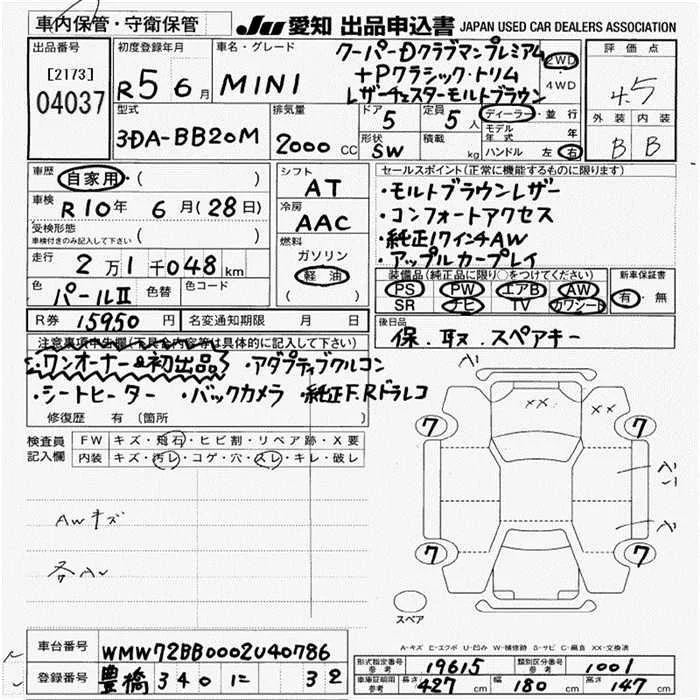 車内保管・守衛保管 JU 愛知 出品申込書 JAPAN USED CAR DEALERS ASSOCIATION
出品番号 [2173] 04037
初度登録年月 R5 6月
車名・グレード MINI クーパーDクラブマンプレミアム
+Pクラシック・トリム
レザーチェスターモルトブラウン
2WD・4WD
評価点 4.5
外装 B 内装 B
型式 3DA-BB20M
排気量 2000 CC
ドア 5 定員 5人
形状 SW 積載 kg
ディーラー・並行
モデル年式 年
ハンドル 左 右
車歴 自家用・( )
車検 R10年 6月(28日)
受検形態 車検付きのみ記入して下さい ( )
走行 2万1千048km
色 パールⅡ 色替 色コード
シフト AT
冷房 AAC
燃料 ガソリン
軽油
( )
セールスポイント(正常に機能するものに限ります)
・モルトブラウンレザー
・コンフォートアクセス
・純正17インチAW
・アップルカープレイ
装備品(純正品に限り○をつけてください)
PS PW エアB AW
SR ナビ TV カワシート
新車保証書 有・無
R券 15950円 名変通知期限 月 日
後日品 保.取.スペアキー
注意事項申告欄(不具合内容等は具体的に記入して下さい)
ワンオーナー&初出品 ・アダプティブクルコン
・シートヒーター ・バックカメラ ・純正F.Rドラレコ
修復歴 有(箇所 )
検査員記入欄
FW キズ・飛石・ヒビ割・リペア跡・X要
内装 キズ・汚レ・コゲ・穴・スレ・キレ・破レ
AWキズ
A1
XX XX
7 7
A1
7 7
スペア
A-キズ E-エクボ U-凹み W-補修跡 S-サビ C-腐食 XX-交換済
車台番号 WMW72BB0002U40786
登録番号 豊橋 340 に 32
形式指定番号 参考 19615 類別区分番号 参考 1001
車庫証明用 参考 長さ 427cm 幅 180cm 高さ 147cm